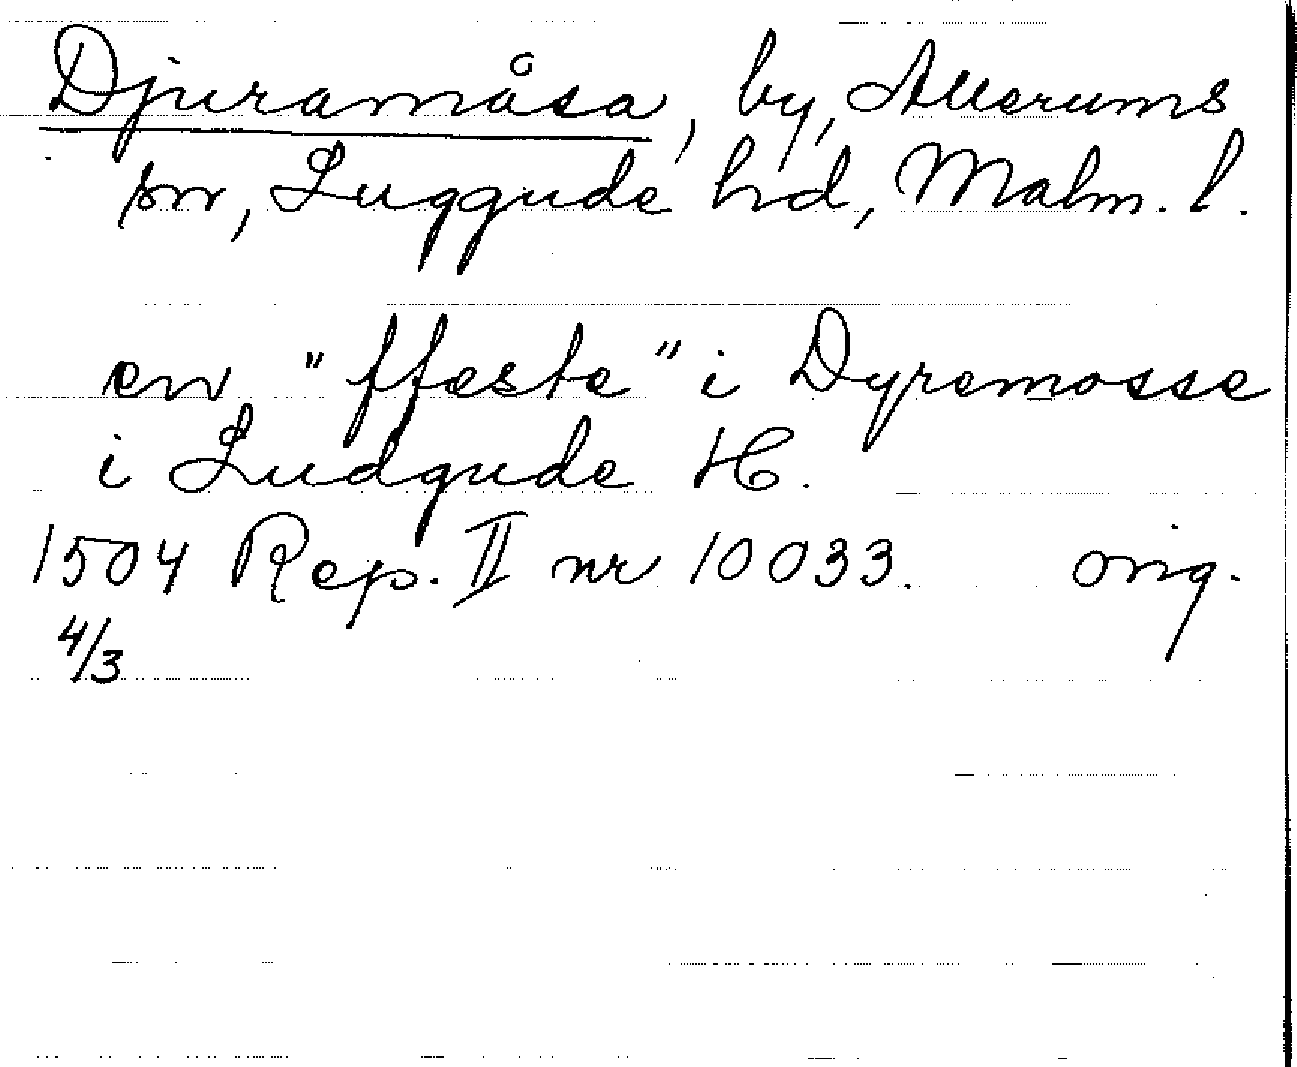 Djuramåsa, by, Allerums
sn, Luggude hd, Malm. l.
en "ffæste" i Dyremosse
i Ludgude H.
1504 Rep. II nr 10033. orig.
4/3